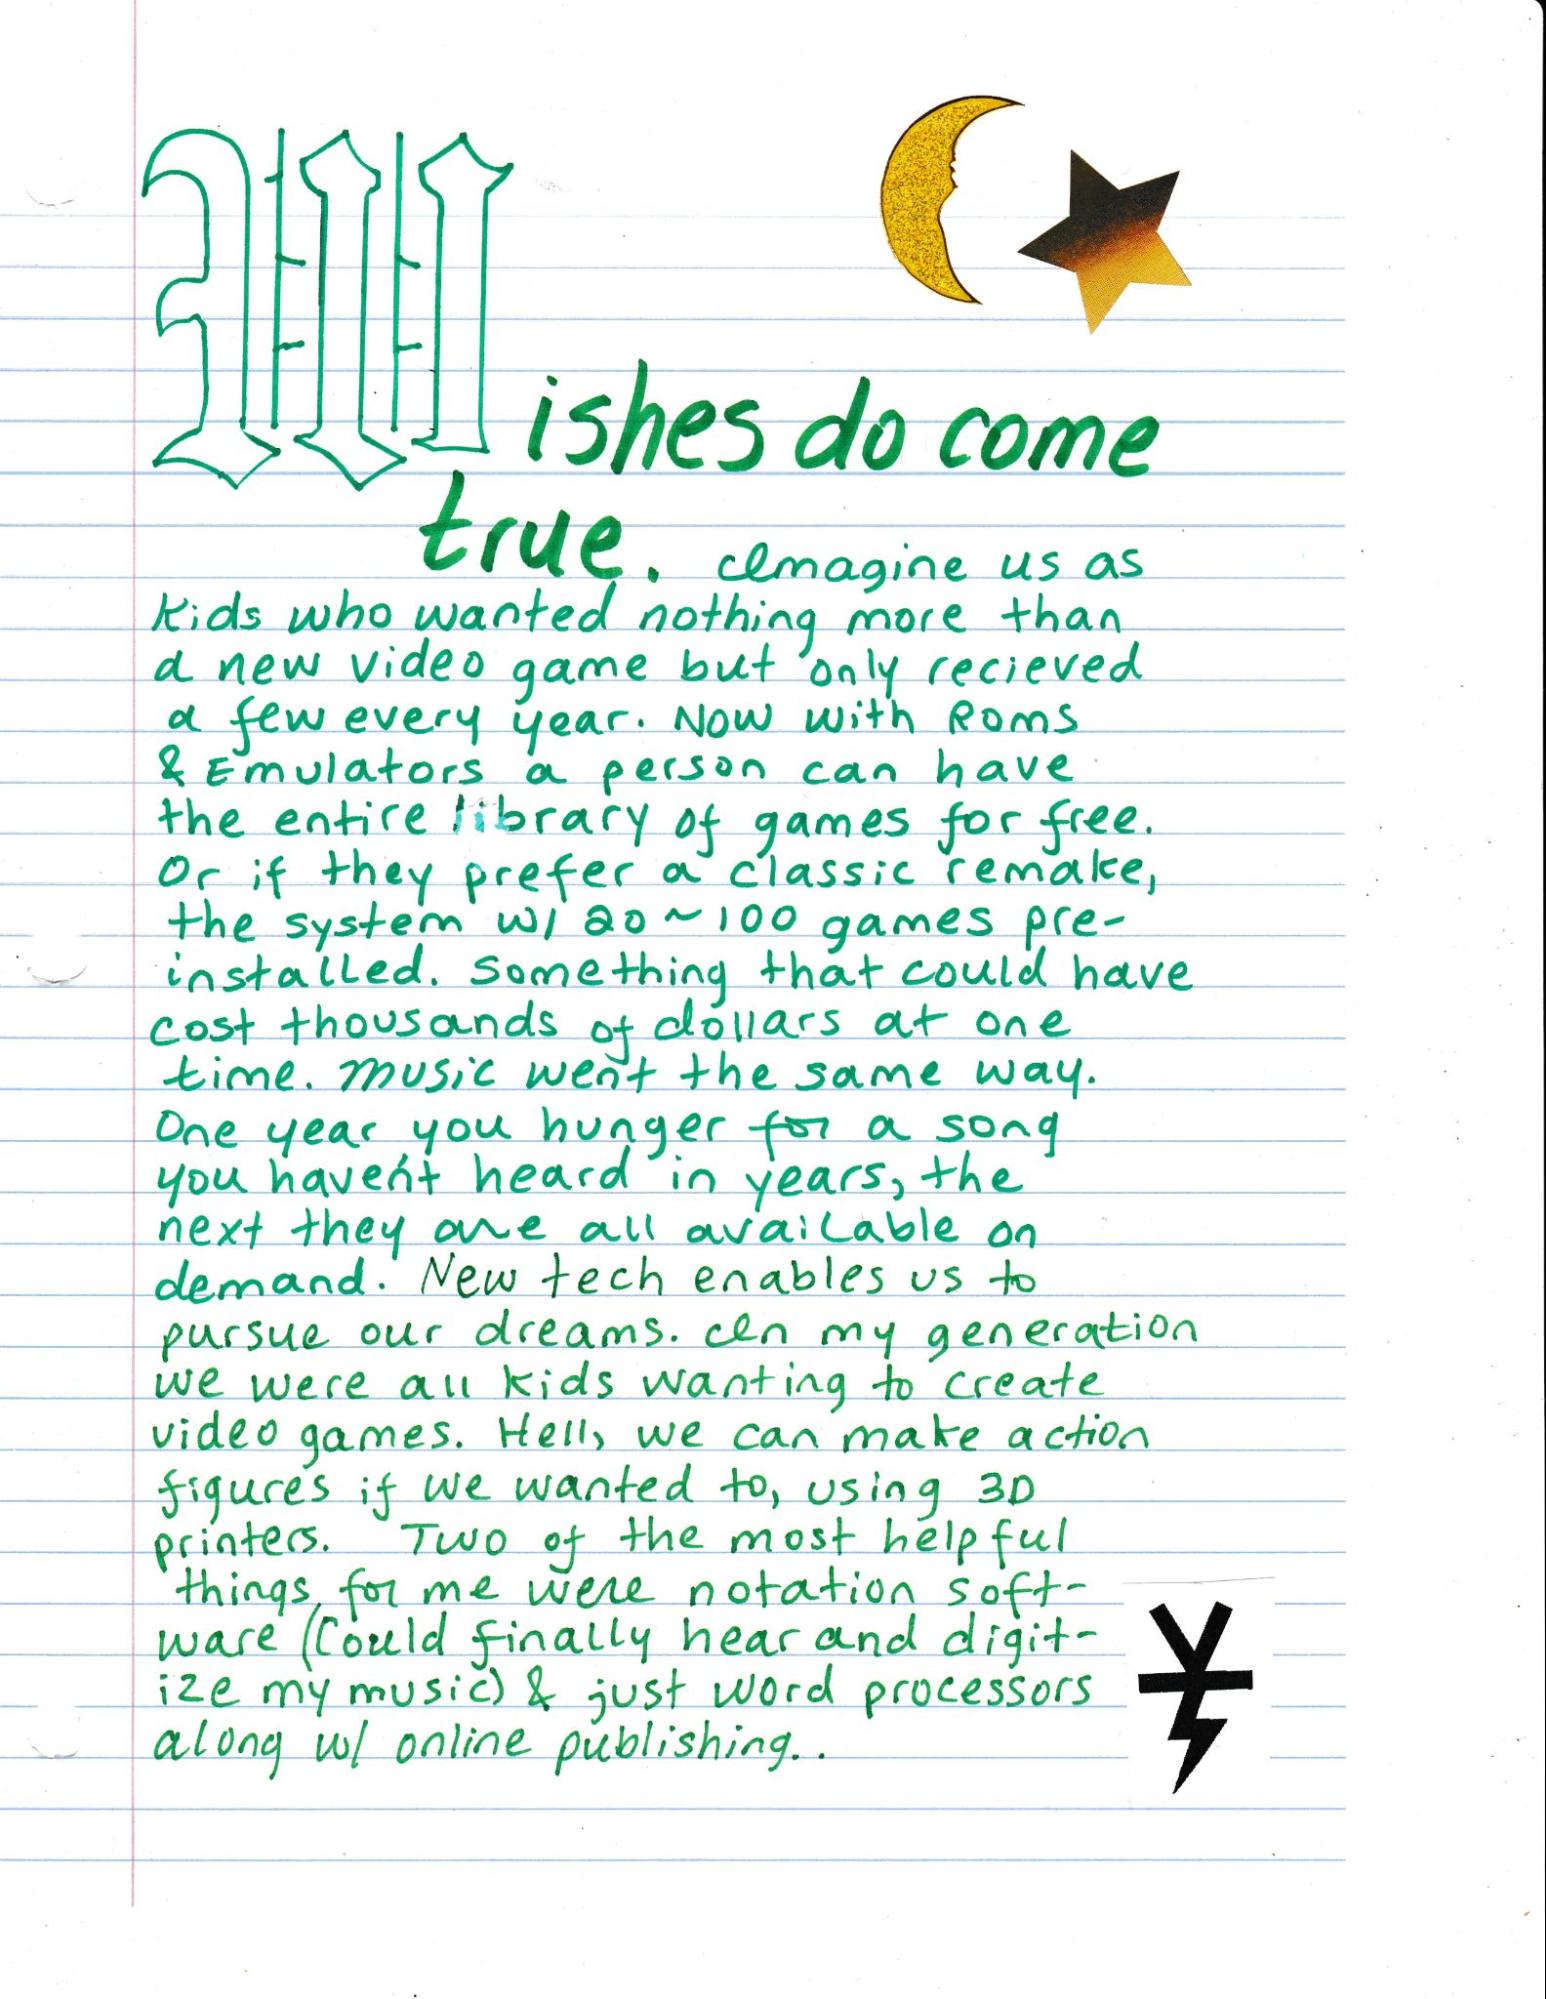 Wishes do come
true. Imagine us as
kids who wanted nothing more than
a new video game but only recieved
a few every year. Now with Roms
& Emulators a person can have
the entire library of games for free.
Or if they prefer a classic remake,
the system w/ 20~100 games pre-
installed. Something that could have
cost thousands of dollars at one
time. Music went the same way.
One year you hunger for a song
you haven't heard in years, the
next they are all available on
demand. New tech enables us to
pursue our dreams. In my generation
we were all kids wanting to create
video games. Hell, we can make action
figures if we wanted to, using 3D
printers. Two of the most helpful
things for me were notation soft-
ware (Could finally hear and digit-
ize my music) & just word processors
along w/ online publishing..